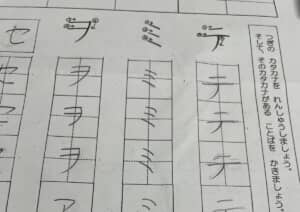 つぎの カタカナを れんしゅうしましょう。
そして、そのカタカナがある ことばを かきましょう。
テ
テ
テ
テ
テ
ミ
ミ
ミ
ミ
ミ
ヲ
ヲ
ヲ
ヲ
セ
セ